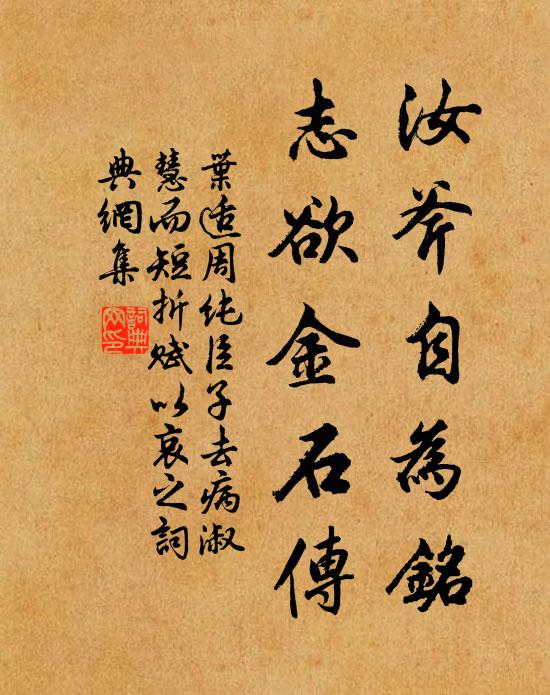 汝斧自為銘
志欲金石傳
葉適周純臣子去病淑
慧而短折賦以哀之詞
典網集
詞典網印